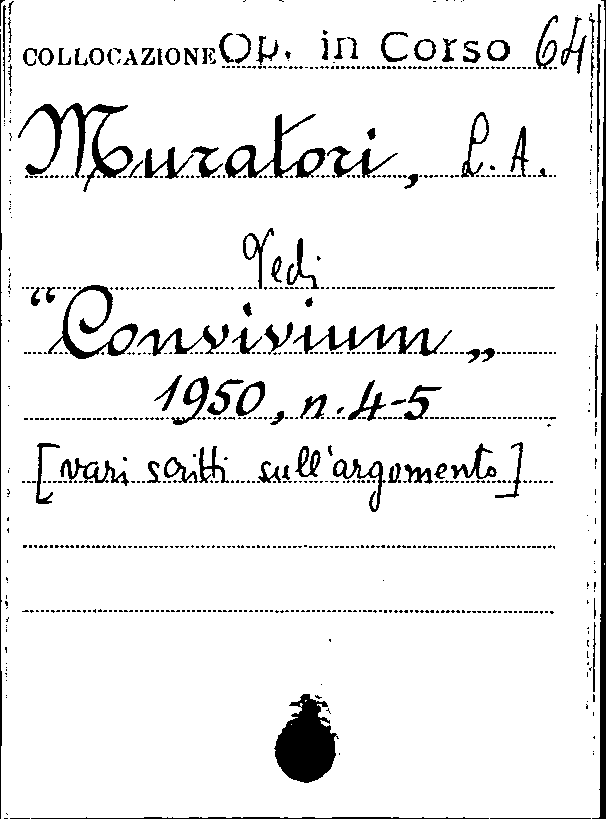 COLLOCAZIONE Op. in Corso 64
Muratori, L. A.
Vedi
“Convivium„
1950, n. 4-5
[vari scritti sull'argomento]